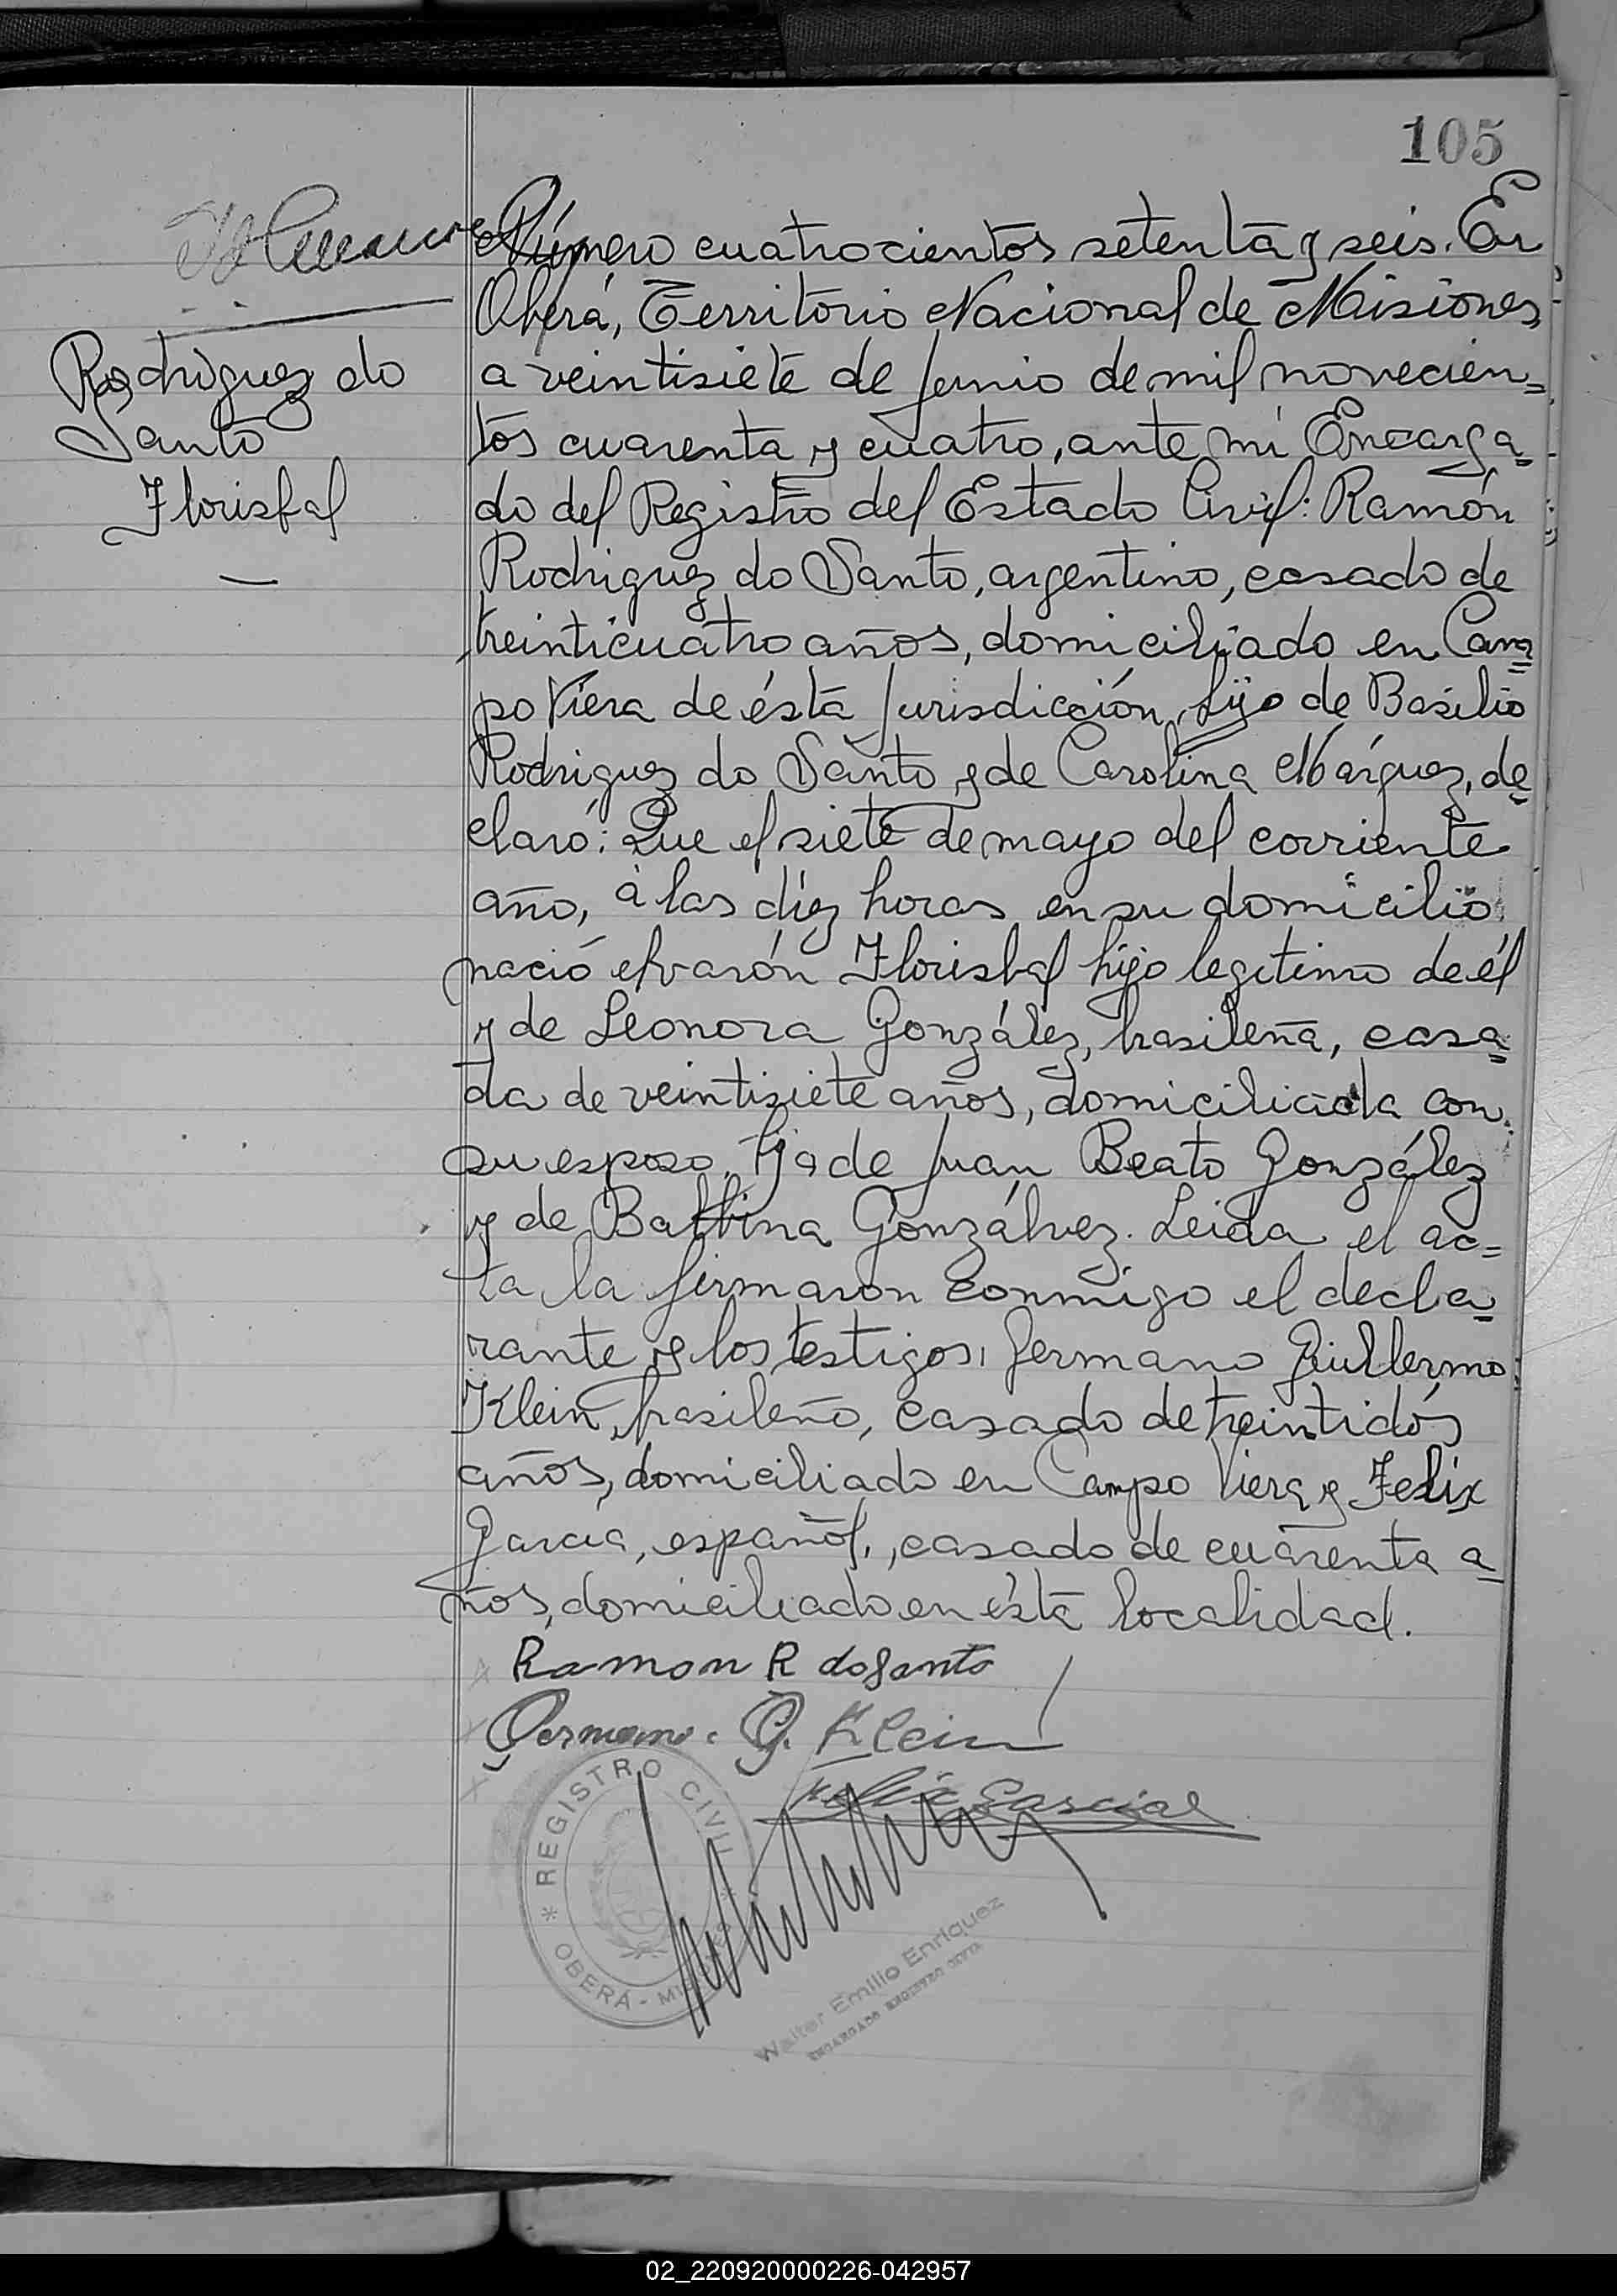 105
Número cuatrocientos setenta y seis. En
Oberá, Territorio Nacional de Misiones,
Rodriguez do
Santo
Florisbal
a veintisiete de Junio de mil novecien=
tos cuarenta y cuatro, ante mí Encarga=
do del Registro del Estado Civil: Ramón
Rodriguez do Santo, argentino, casado de
treinticuatro años, domiciliado en Cam=
po Viera de ésta Jurisdicción, hijo de Basilio
Rodriguez do Santo y de Carolina Márquez, de=
claró: Que el siete de mayo del corriente
año, a las diez horas en su domicilio
nació el varón Florisbal hijo legitimo de él
y de Leonora González, brasileña, casa=
da de veintisiete años, domiciliada con
su esposo, hija de Juan Beato González
y de Balbina Gonzálvez. Leida el ac=
ta la firmaron conmigo el decla=
rante y los testigos, Germano Guillermo
Klein, brasileño, casado de treintidós
años, domiciliado en Campo Viera y Felix
Garcia, español, casado de cuarenta a=
ños, domiciliado en ésta localidad.
Ramon R dosanto
Germano. G. Klein
Felix Garcia
* REGISTRO CIVIL *
OBERÁ - MISIONES
Walter Emilio Enriquez
ENCARGADO REGISTRO CIVIL
02_220920000226-042957